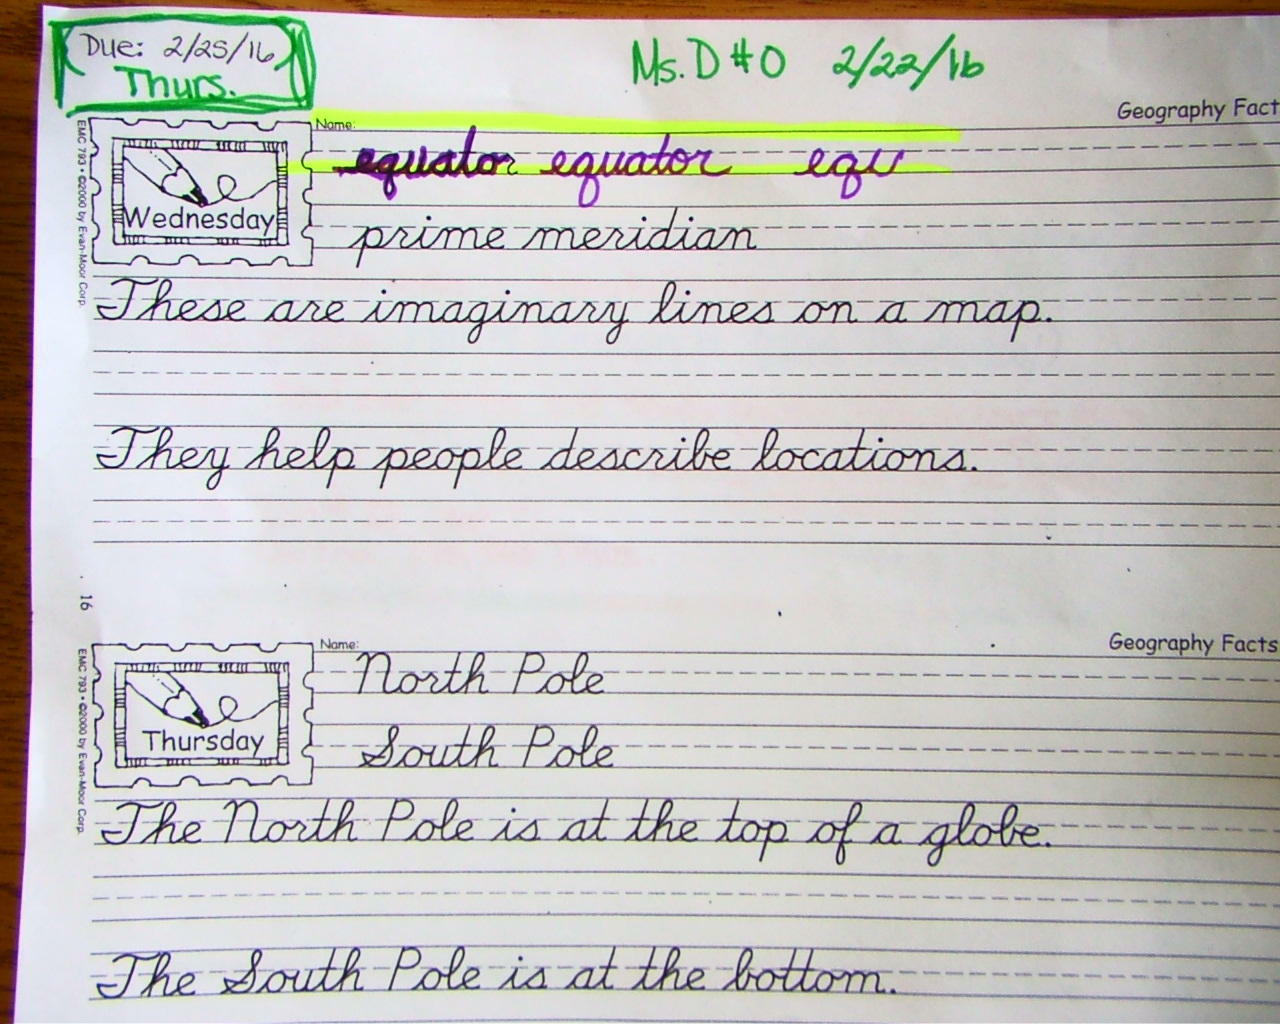 Due: 2/25/16
Thurs.
Ms. D #0 2/22/16
Geography Fact
Name:
equator equator equ
Wednesday
prime meridian
EMC 793 • ©2000 by Evan-Moor Corp.
These are imaginary lines on a map.
They help people describe locations.
16
Name:
Geography Facts
North Pole
Thursday
South Pole
EMC 793 • ©2000 by Evan-Moor Corp.
The North Pole is at the top of a globe.
The South Pole is at the bottom.